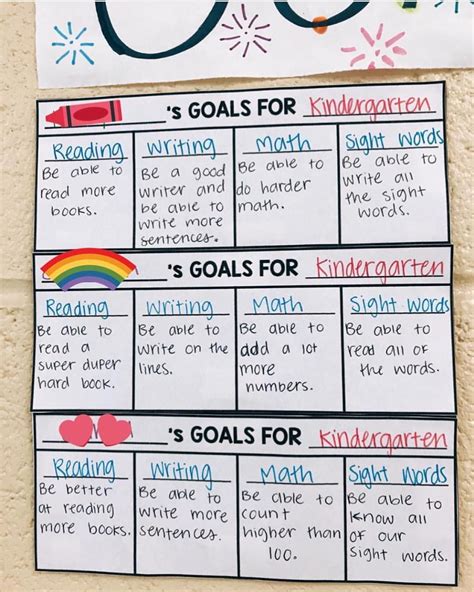 's GOALS FOR Kindergarten
Reading
Be able to
read more
books.
Writing
Be a good
writer and
be able to
write more
sentences.
Math
Be able to
do harder
math.
Sight Words
Be able to
write all
the sight
words.
's GOALS FOR Kindergarten
Reading
Be able to
read a
super duper
hard book.
Writing
Be able to
write on the
lines.
Math
Be able to
add a lot
more
numbers.
Sight Words
Be able to
read all of
the words.
's GOALS FOR Kindergarten
Reading
Be better
at reading
more books.
Writing
Be able to
write more
sentences.
Math
Be able to
count
higher than
100.
Sight Words
Be able to
know all
of our
sight words.